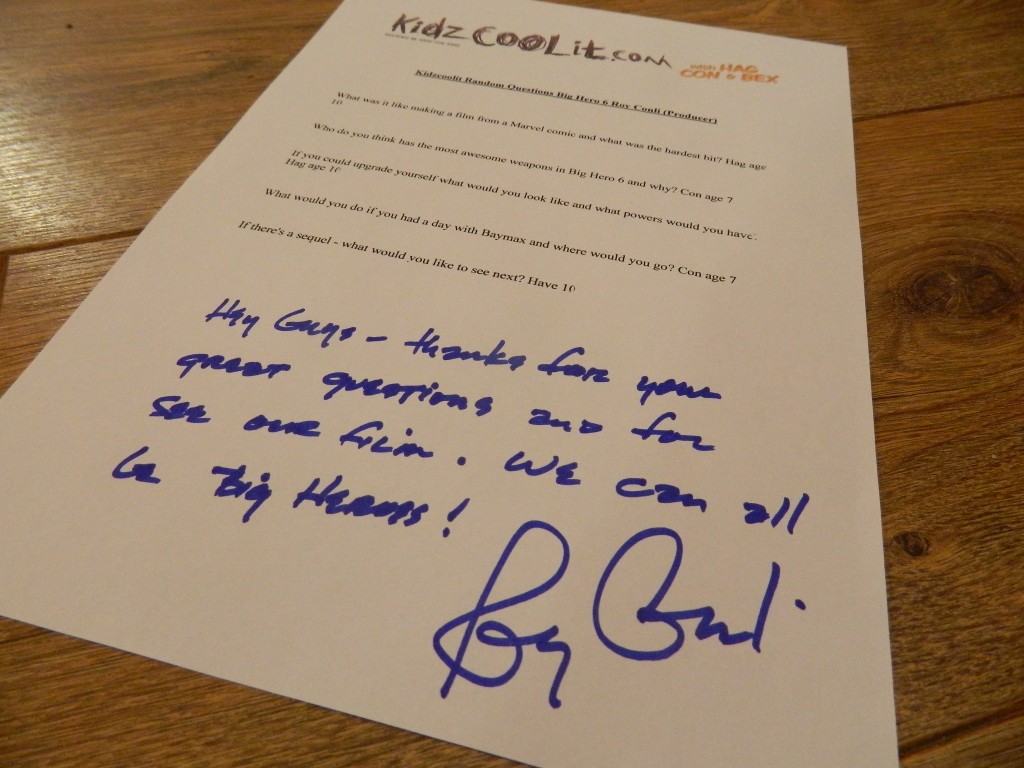 Kidz COOLit.com
with HAG
CON & BEX
Kidzcoolit Random Questions Big Hero 6 Roy Conli (Producer)
What was it like making a film from a Marvel comic and what was the hardest bit? Hag age
10
Who do you think has the most awesome weapons in Big Hero 6 and why? Con age 7
If you could upgrade yourself what would you look like and what powers would you have.
Hag age 10
What would you do if you had a day with Baymax and where would you go? Con age 7
If there's a sequel - what would you like to see next? Have 10
Hey Guys - thanks for your
great questions and for
see our film. We can all
be Big Heroes!
Roy Conli